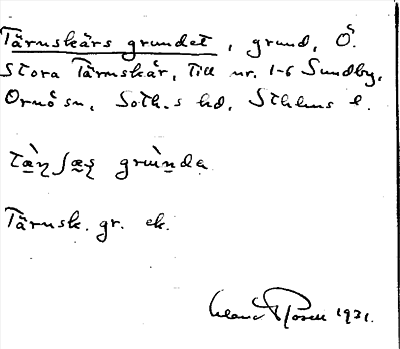 Tärnskärs grundet, grund, Ö.
Stora Tärnskär, till nr. 1-6 Sundby,
Ornö sn, Soth.s hd, Sthlms l.
grùnda
Tärnsk. gr. ek.
1931.